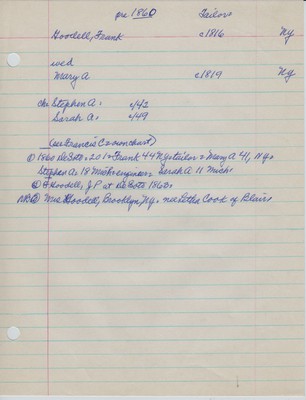 pre 1860 Tailors
Hoodell, Frank c1816 NY
wed
Mary A c1819 NY
ch: Stephen A: c/43
Sarah A: c/49
(see Francis C = monchart)
① 1860 DeSoto: 201: Frank 44 NY: tailor: Mary A 41, NY:
Stephen A: 18 Mich: engineer: Sarah A 11 Mich:
② F Hoodell, J.P. at DeSoto 1860s
Mrs Hoodell, Brooklyn, NY: nee Letha Cook of Blairs